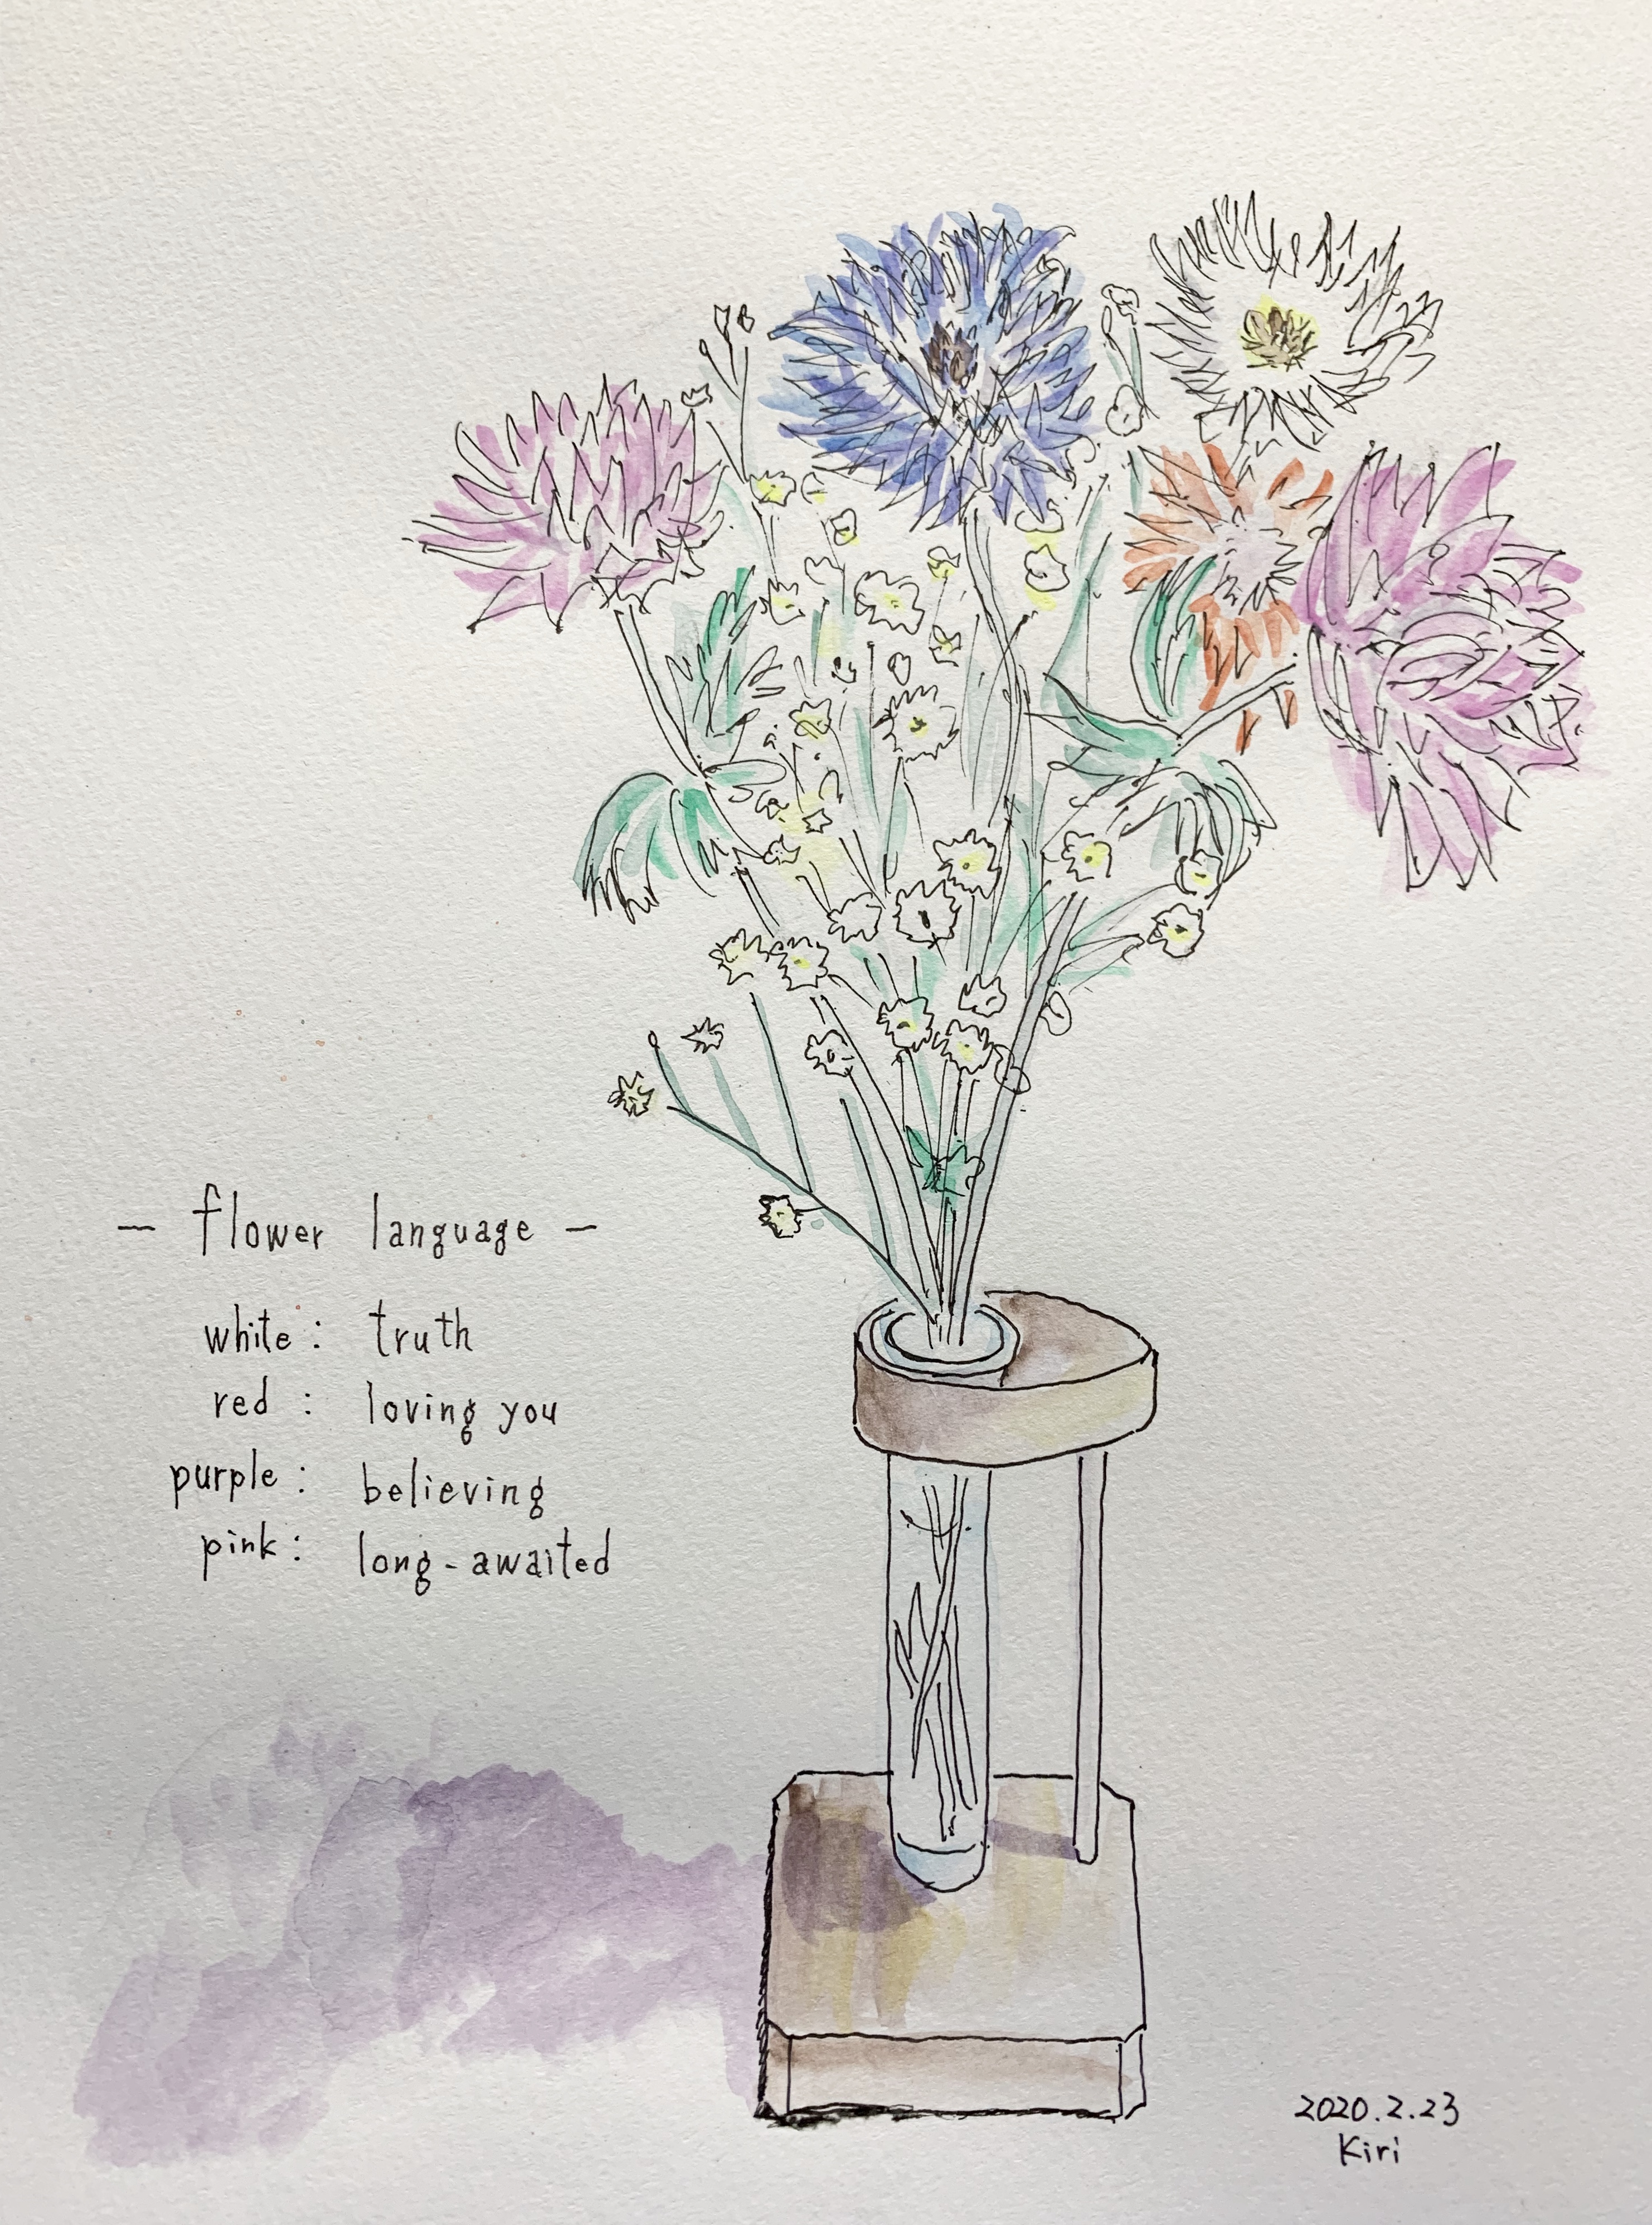 — flower language —
white : truth
red : loving you
purple : believing
pink : long-awaited
2020.2.23
Kiri